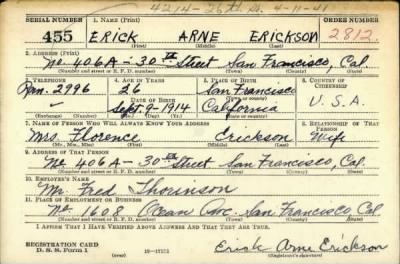 4214-26th St. 4-11-41
SERIAL NUMBER 1. NAME (Print) ORDER NUMBER
455 ERICK ARNE ERICKSON 2812.
(First) (Middle) (Last)
2. ADDRESS (Print)
No 406A-30th Street San Francisco, Cal.
(Number and street or R. F. D. number) (Town) (County) (State)
3. TELEPHONE 4. AGE IN YEARS 5. PLACE OF BIRTH 6. COUNTRY OF CITIZENSHIP
2996 26 San Francisco
DATE OF BIRTH (Town or county)
Sept 9-1914 California U.S.A.
(Exchange) (No.) (Mo.) (Day) (Yr.) (State or country)
7. NAME OF PERSON WHO WILL ALWAYS KNOW YOUR ADDRESS 8. RELATIONSHIP OF THAT PERSON
Mrs. Florence Erickson Wife
(Mr., Mrs., Miss) (First) (Middle) (Last)
9. ADDRESS OF THAT PERSON
No 406A-30th Street San Francisco, Cal.
(Number and street or R. F. D. number) (Town) (County) (State)
10. EMPLOYER'S NAME
Mr. Fred Thorinson
11. PLACE OF EMPLOYMENT OR BUSINESS
No 1608 Ocean Ave. San Francisco, Cal
(Number and street or R. F. D. number) (Town) (County) (State)
I AFFIRM THAT I HAVE VERIFIED ABOVE ANSWERS AND THAT THEY ARE TRUE.
REGISTRATION CARD
D. S. S. Form 1 Erick Arne Erickson
(Registrant's signature)